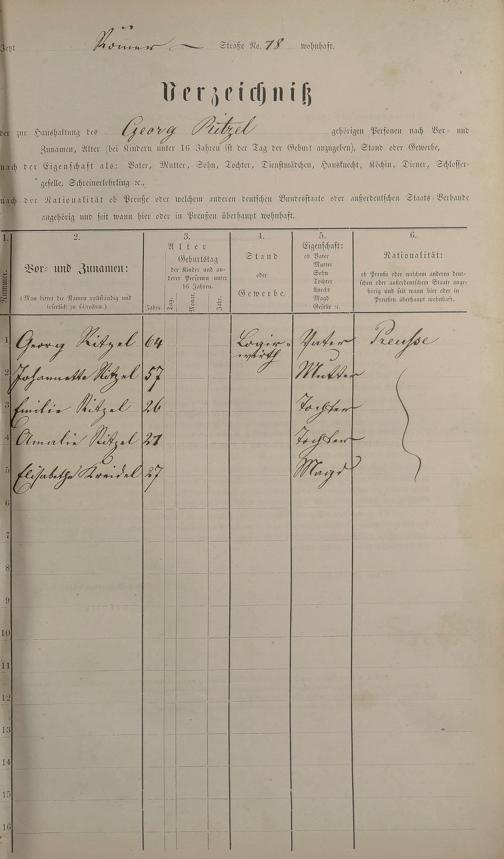 Jetzt Römer Straße No. 78 wohnhaft.
Verzeichniß
der zur Haushaltung des Georg Ritzel gehörigen Personen nach Vor- und
Zunamen, Alter (bei Kindern unter 16 Jahren ist der Tag der Geburt anzugeben), Stand oder Gewerbe,
nach der Eigenschaft als: Vater, Mutter, Sohn, Tochter, Dienstmädchen, Hausknecht, Köchin, Diener, Schlosser-
geselle, Schreinerlehrling ꝛc.,
nach der Nationalität ob Preuße oder welchem anderen deutschen Bundesstaate oder außerdeutschen Staats-Verbande
angehörig und seit wann hier oder in Preußen überhaupt wohnhaft.
1. 2. 3. 4. 5. 6.
Nummer.
Vor- und Zunamen:
(Man bittet die Namen vollständig und
leserlich zu schreiben.)
Alter
Geburtstag
der Kinder und an-
derer Personen unter
16 Jahren.
Jahre Tag. Monat. Jahr.
Stand
oder
Gewerbe.
Eigenschaft:
ob Vater
Mutter
Sohn
Tochter
Knecht
Magd
Geselle ꝛc.
Nationalität:
ob Preuße oder welchem anderen deut-
schen oder außerdeutschen Staate ange-
hörig und seit wann hier oder in
Preußen überhaupt wohnhaft.
1 Georg Ritzel 64 Logir- Vater Preusse
wirth
2 Johannette Ritzel 57 Mutter
3 Emilie Ritzel 26 Tochter
4 Amalie Ritzel 21 Tochter
5 Elisabetha Kreidel 27 Magd
6
7
8
9
10
11
12
13
14
15
16